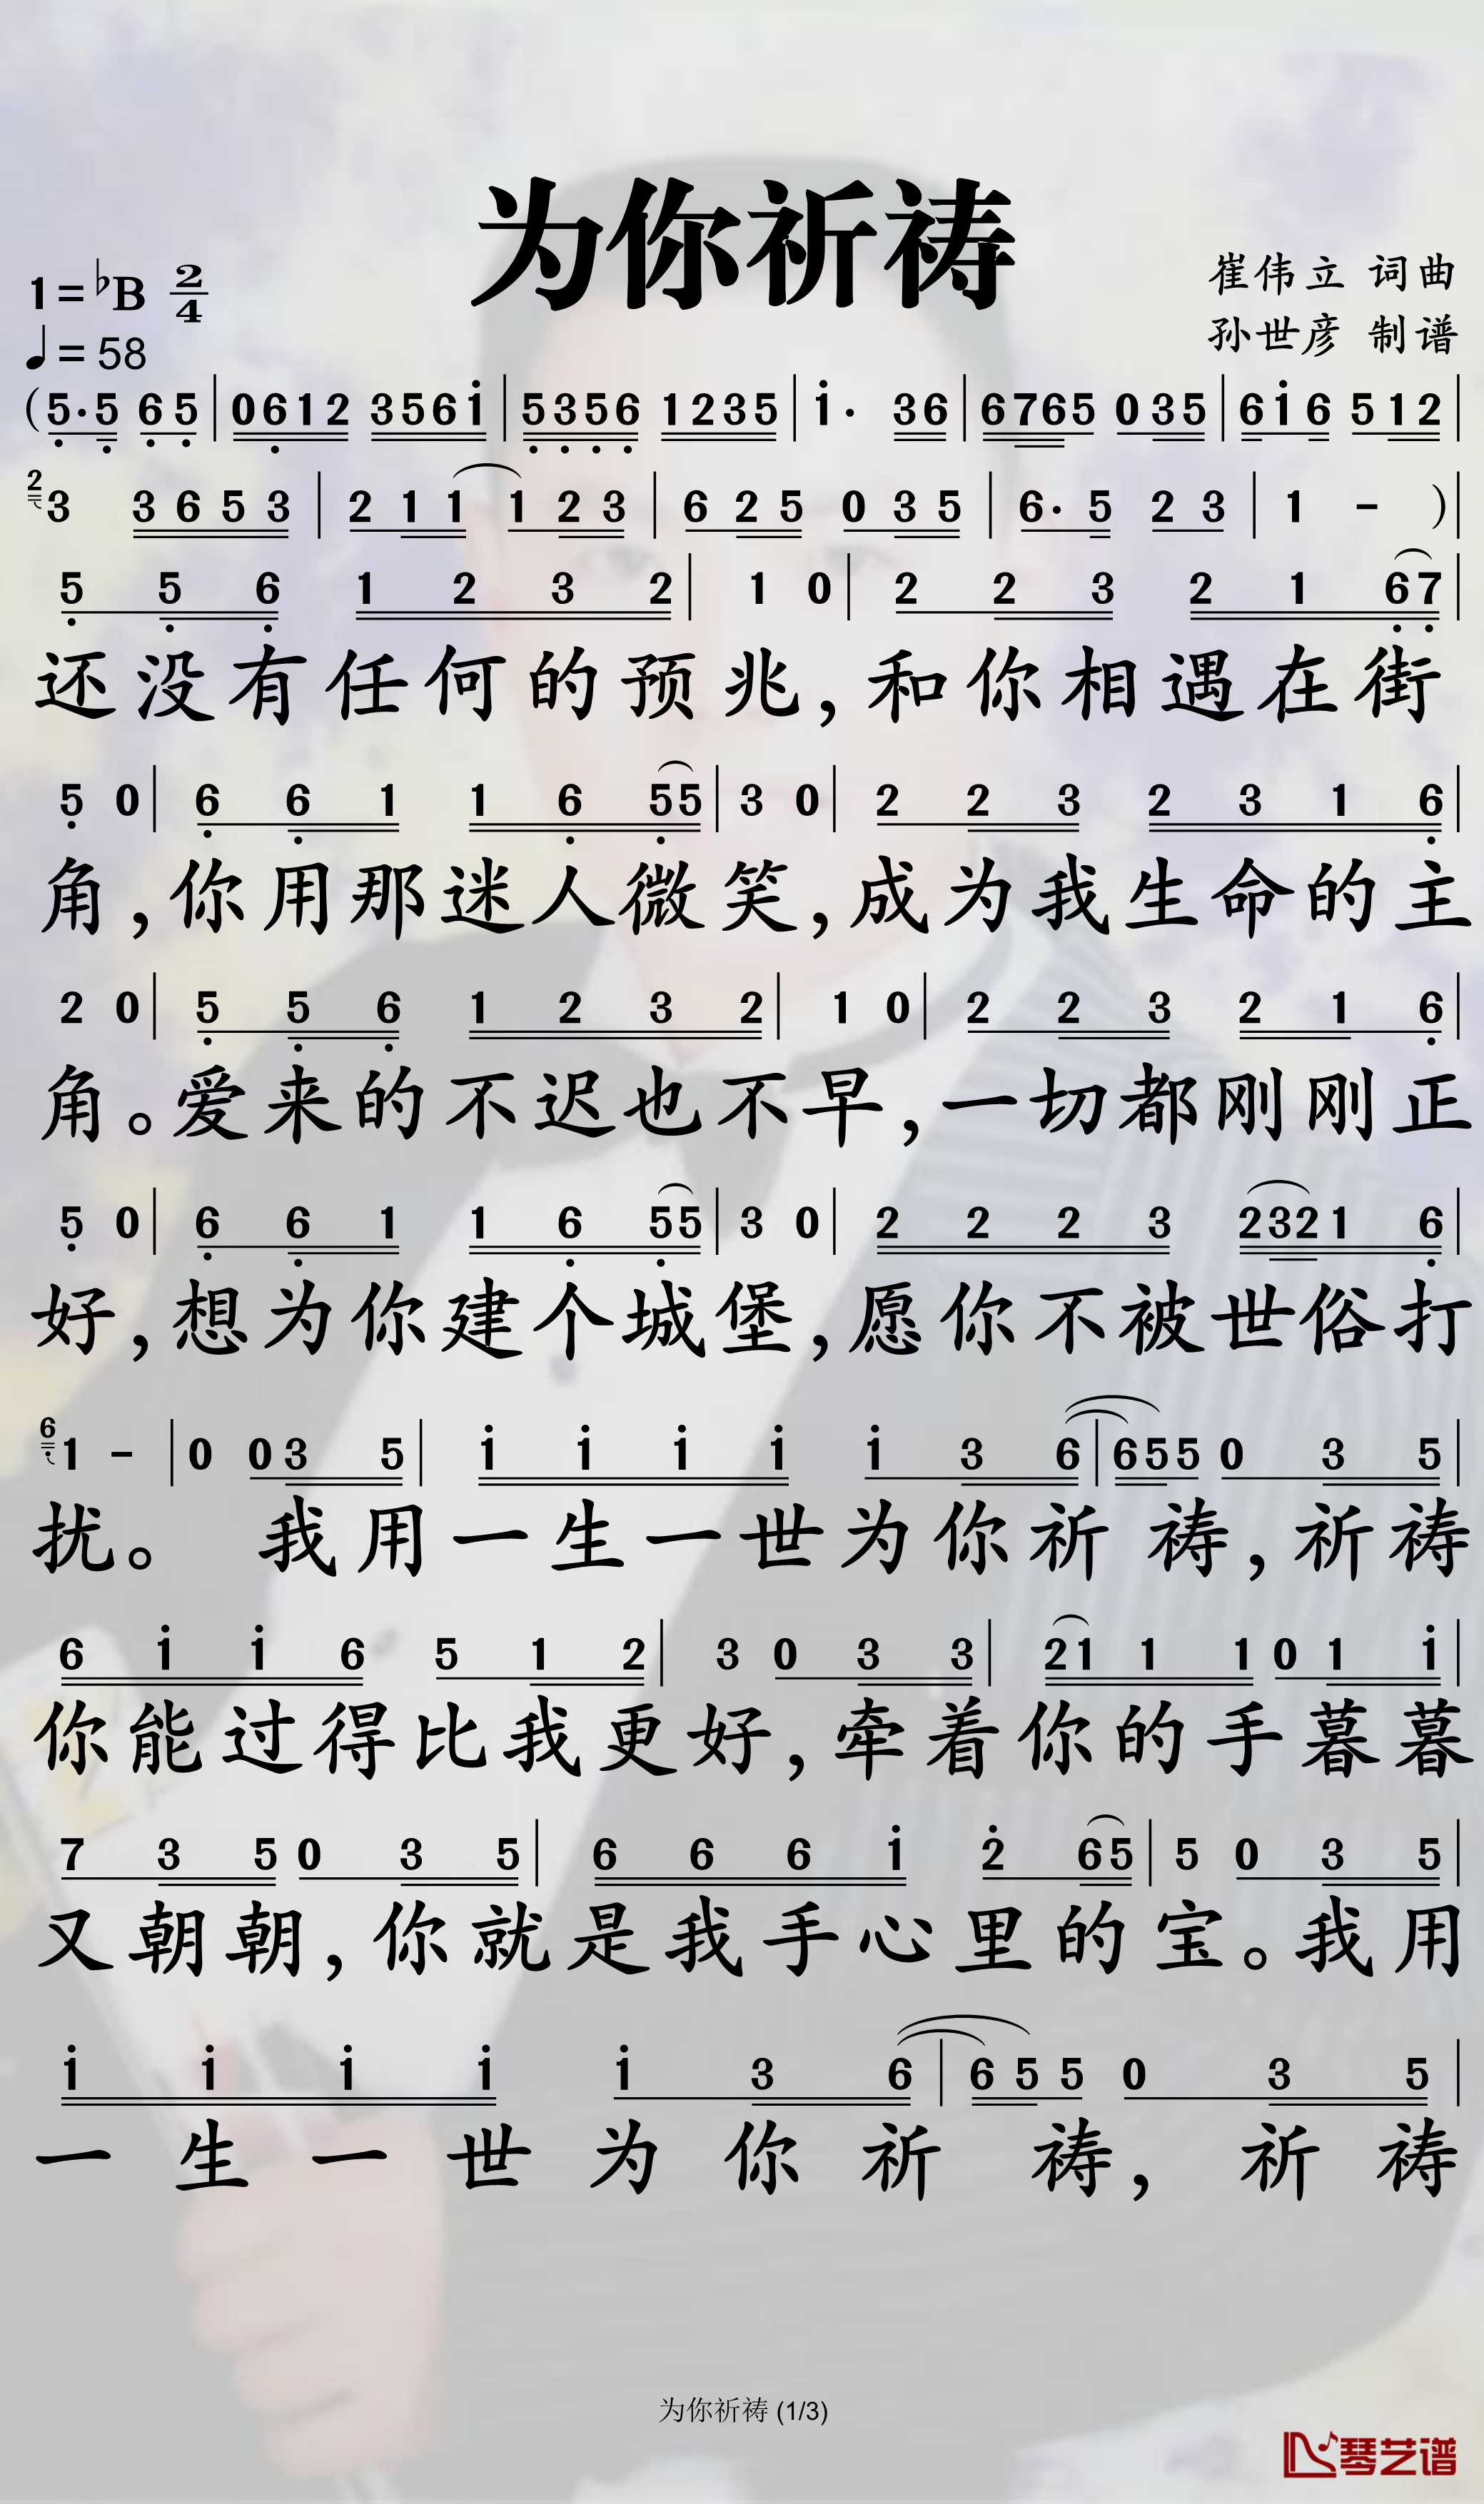 为你祈祷
1=♭B 2/4
♩=58
崔伟立 词曲
孙世彦 制谱
(5·5 65|0612 356i|5356 1235|i· 36|6765 035|6i6 512|
2 3 3653|211 123|625 035|6·5 23|1 -)|
5 5 6 1 2 3 2|1 0|2 2 3 2 1 67|
还没有任何的预兆,和你相遇在街
5 0|6 6 1 1 6 55|3 0|2 2 3 2 3 1 6|
角,你用那迷人微笑,成为我生命的主
2 0|5 5 6 1 2 3 2|1 0|2 2 3 2 1 6|
角。爱来的不迟也不早,一切都刚刚正
5 0|6 6 1 1 6 55|3 0|2 2 2 3 2321 6|
好,想为你建个城堡,愿你不被世俗打
6 1 -|0 03 5|i i i i i 3 6|655 0 3 5|
扰。 我用一生一世为你祈祷,祈祷
6 i i 6 5 1 2|3 0 3 3|21 1 1 0 1 i|
你能过得比我更好,牵着你的手暮暮
7 3 5 0 3 5|6 6 6 i 2 65|5 0 3 5|
又朝朝,你就是我手心里的宝。我用
i i i i i 3 6|6 5 5 0 3 5|
一生一世为你祈祷,祈祷
为你祈祷 (1/3)
琴艺谱